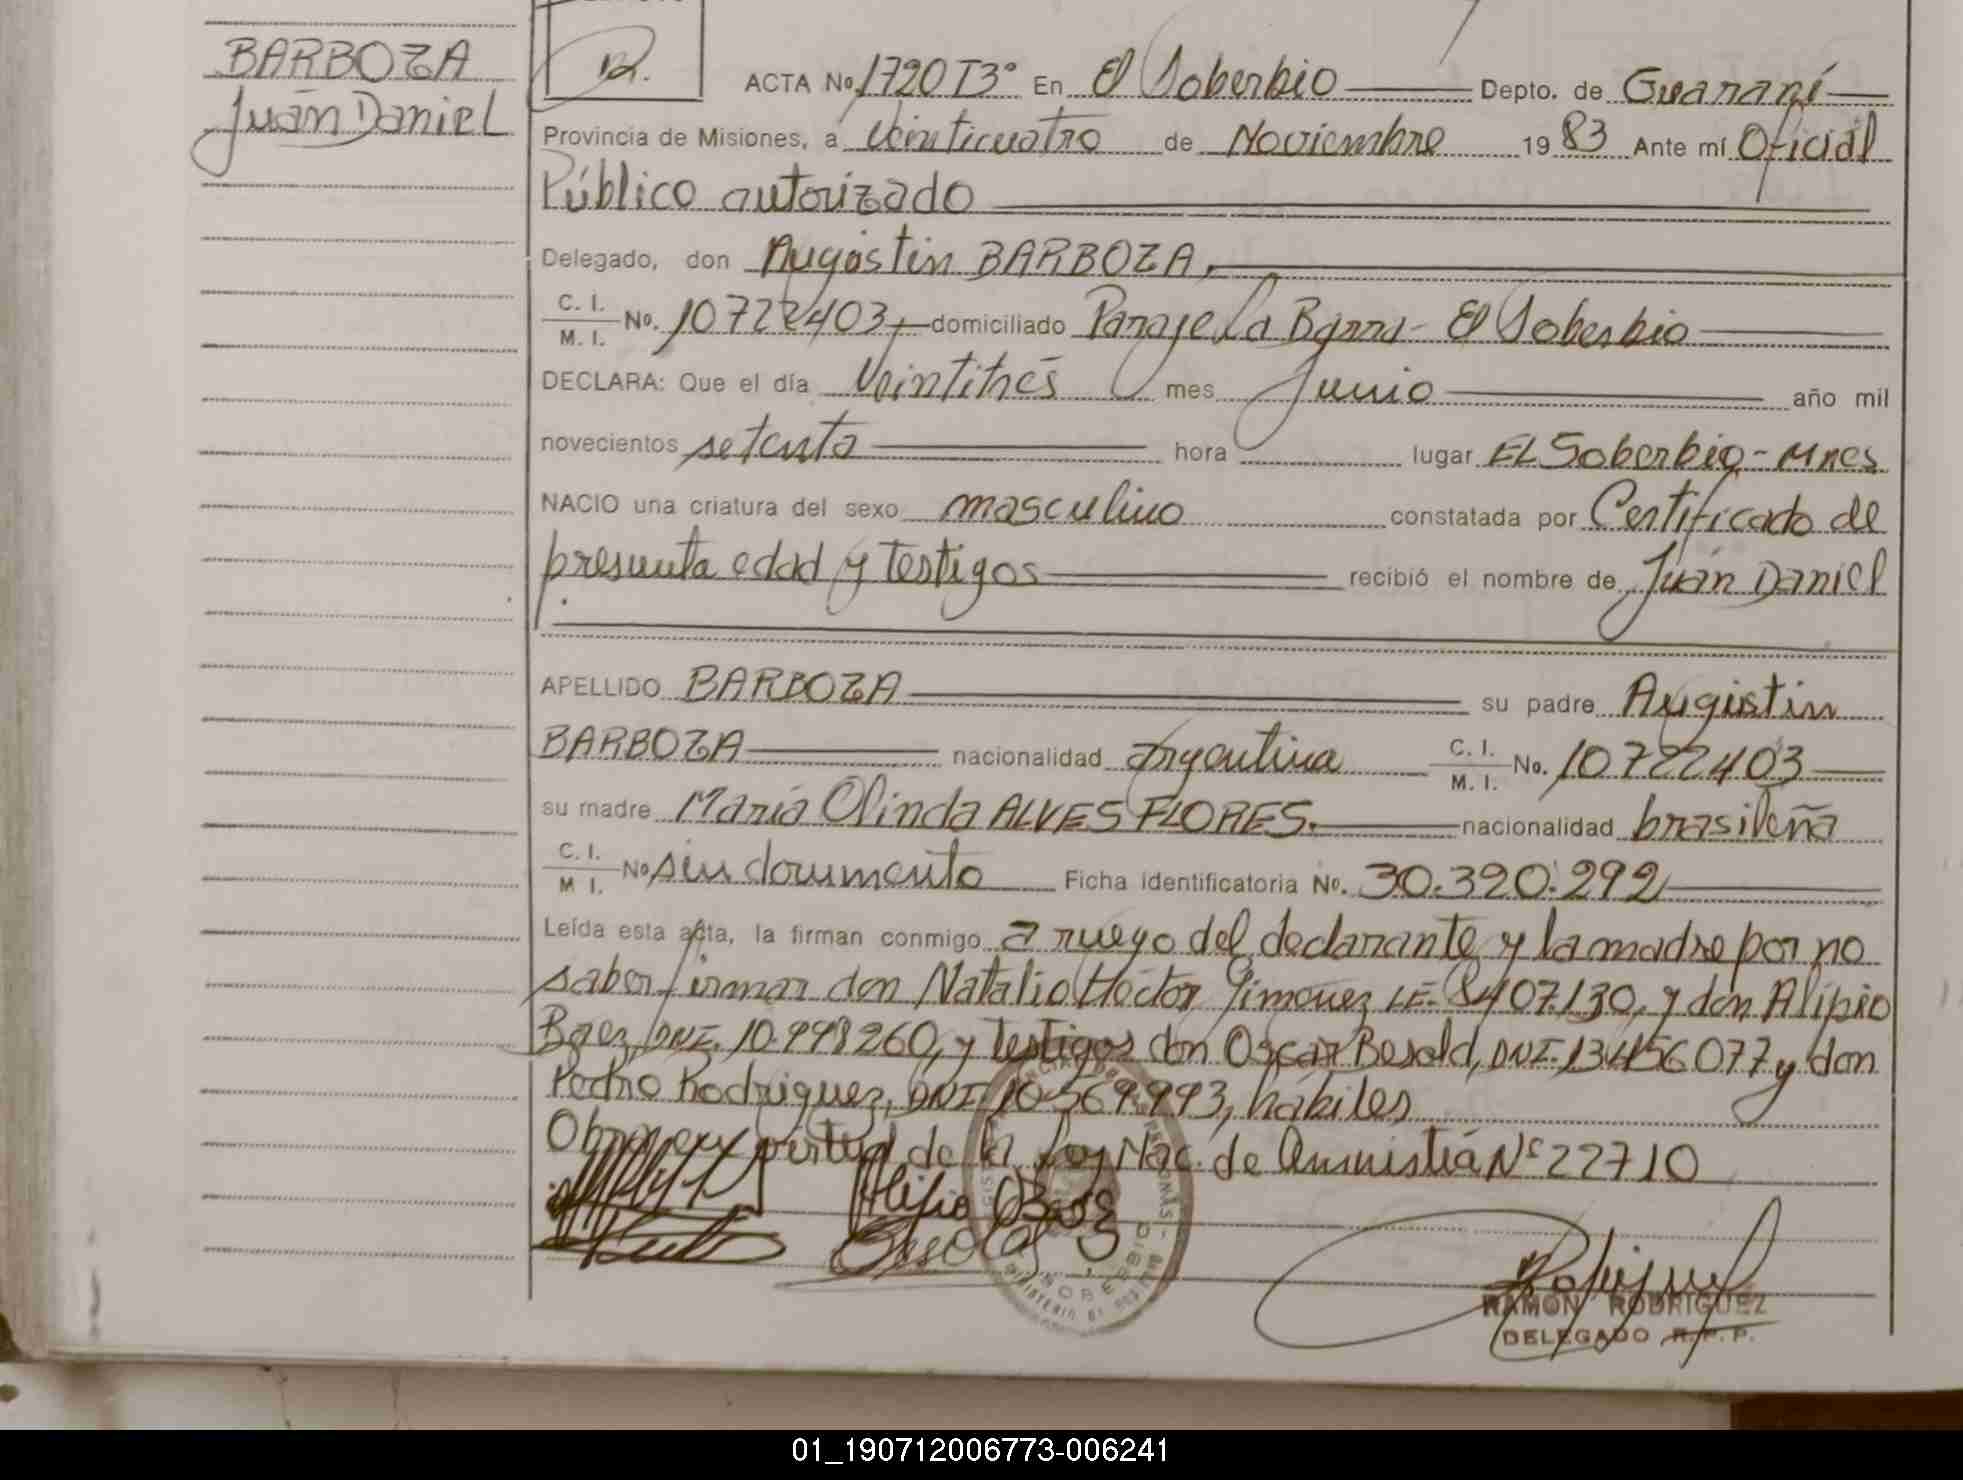 BARBOZA
Juán Daniel
ACTA No. 1720 T3° En El Soberbio Depto. de Guaraní
Provincia de Misiones, a Veinticuatro de Noviembre 1983 Ante mí Oficial
Público autorizado
Delegado, don Augustin BARBOZA,
C. I.
M. I. No. 10722403, domiciliado Paraje La Barra - El Soberbio
DECLARA: Que el día Veintitrés mes Junio año mil
novecientos setenta hora lugar EL Soberbio - Mnes
NACIO una criatura del sexo masculino constatada por Certificado de
presunta edad y testigos recibió el nombre de Juán Daniel
APELLIDO BARBOZA su padre Augustin
BARBOZA nacionalidad argentina C. I.
M. I. No. 10722403
su madre María Olinda ALVES FLORES. nacionalidad brasileña
C. I.
M I. No sin documento Ficha identificatoria No. 30.320.292
Leída esta acta, la firman conmigo a ruego del declarante y la madre por no
saber firmar don Natalio Héctor Gimenez LE. 8407.130, y don Alipio
Baez, DNI. 10.998260, y testigos don Oscar Besold, DNI. 13456077 y don
Pedro Rodriguez, DNI 10-569993, hábiles
Obra en virtud de la Ley Nac. de Amnistía N° 22710
Alipio Baez
Besold
SOBERBIO
RAMON RODRIGUEZ
DELEGADO R.P.P.
01_190712006773-006241